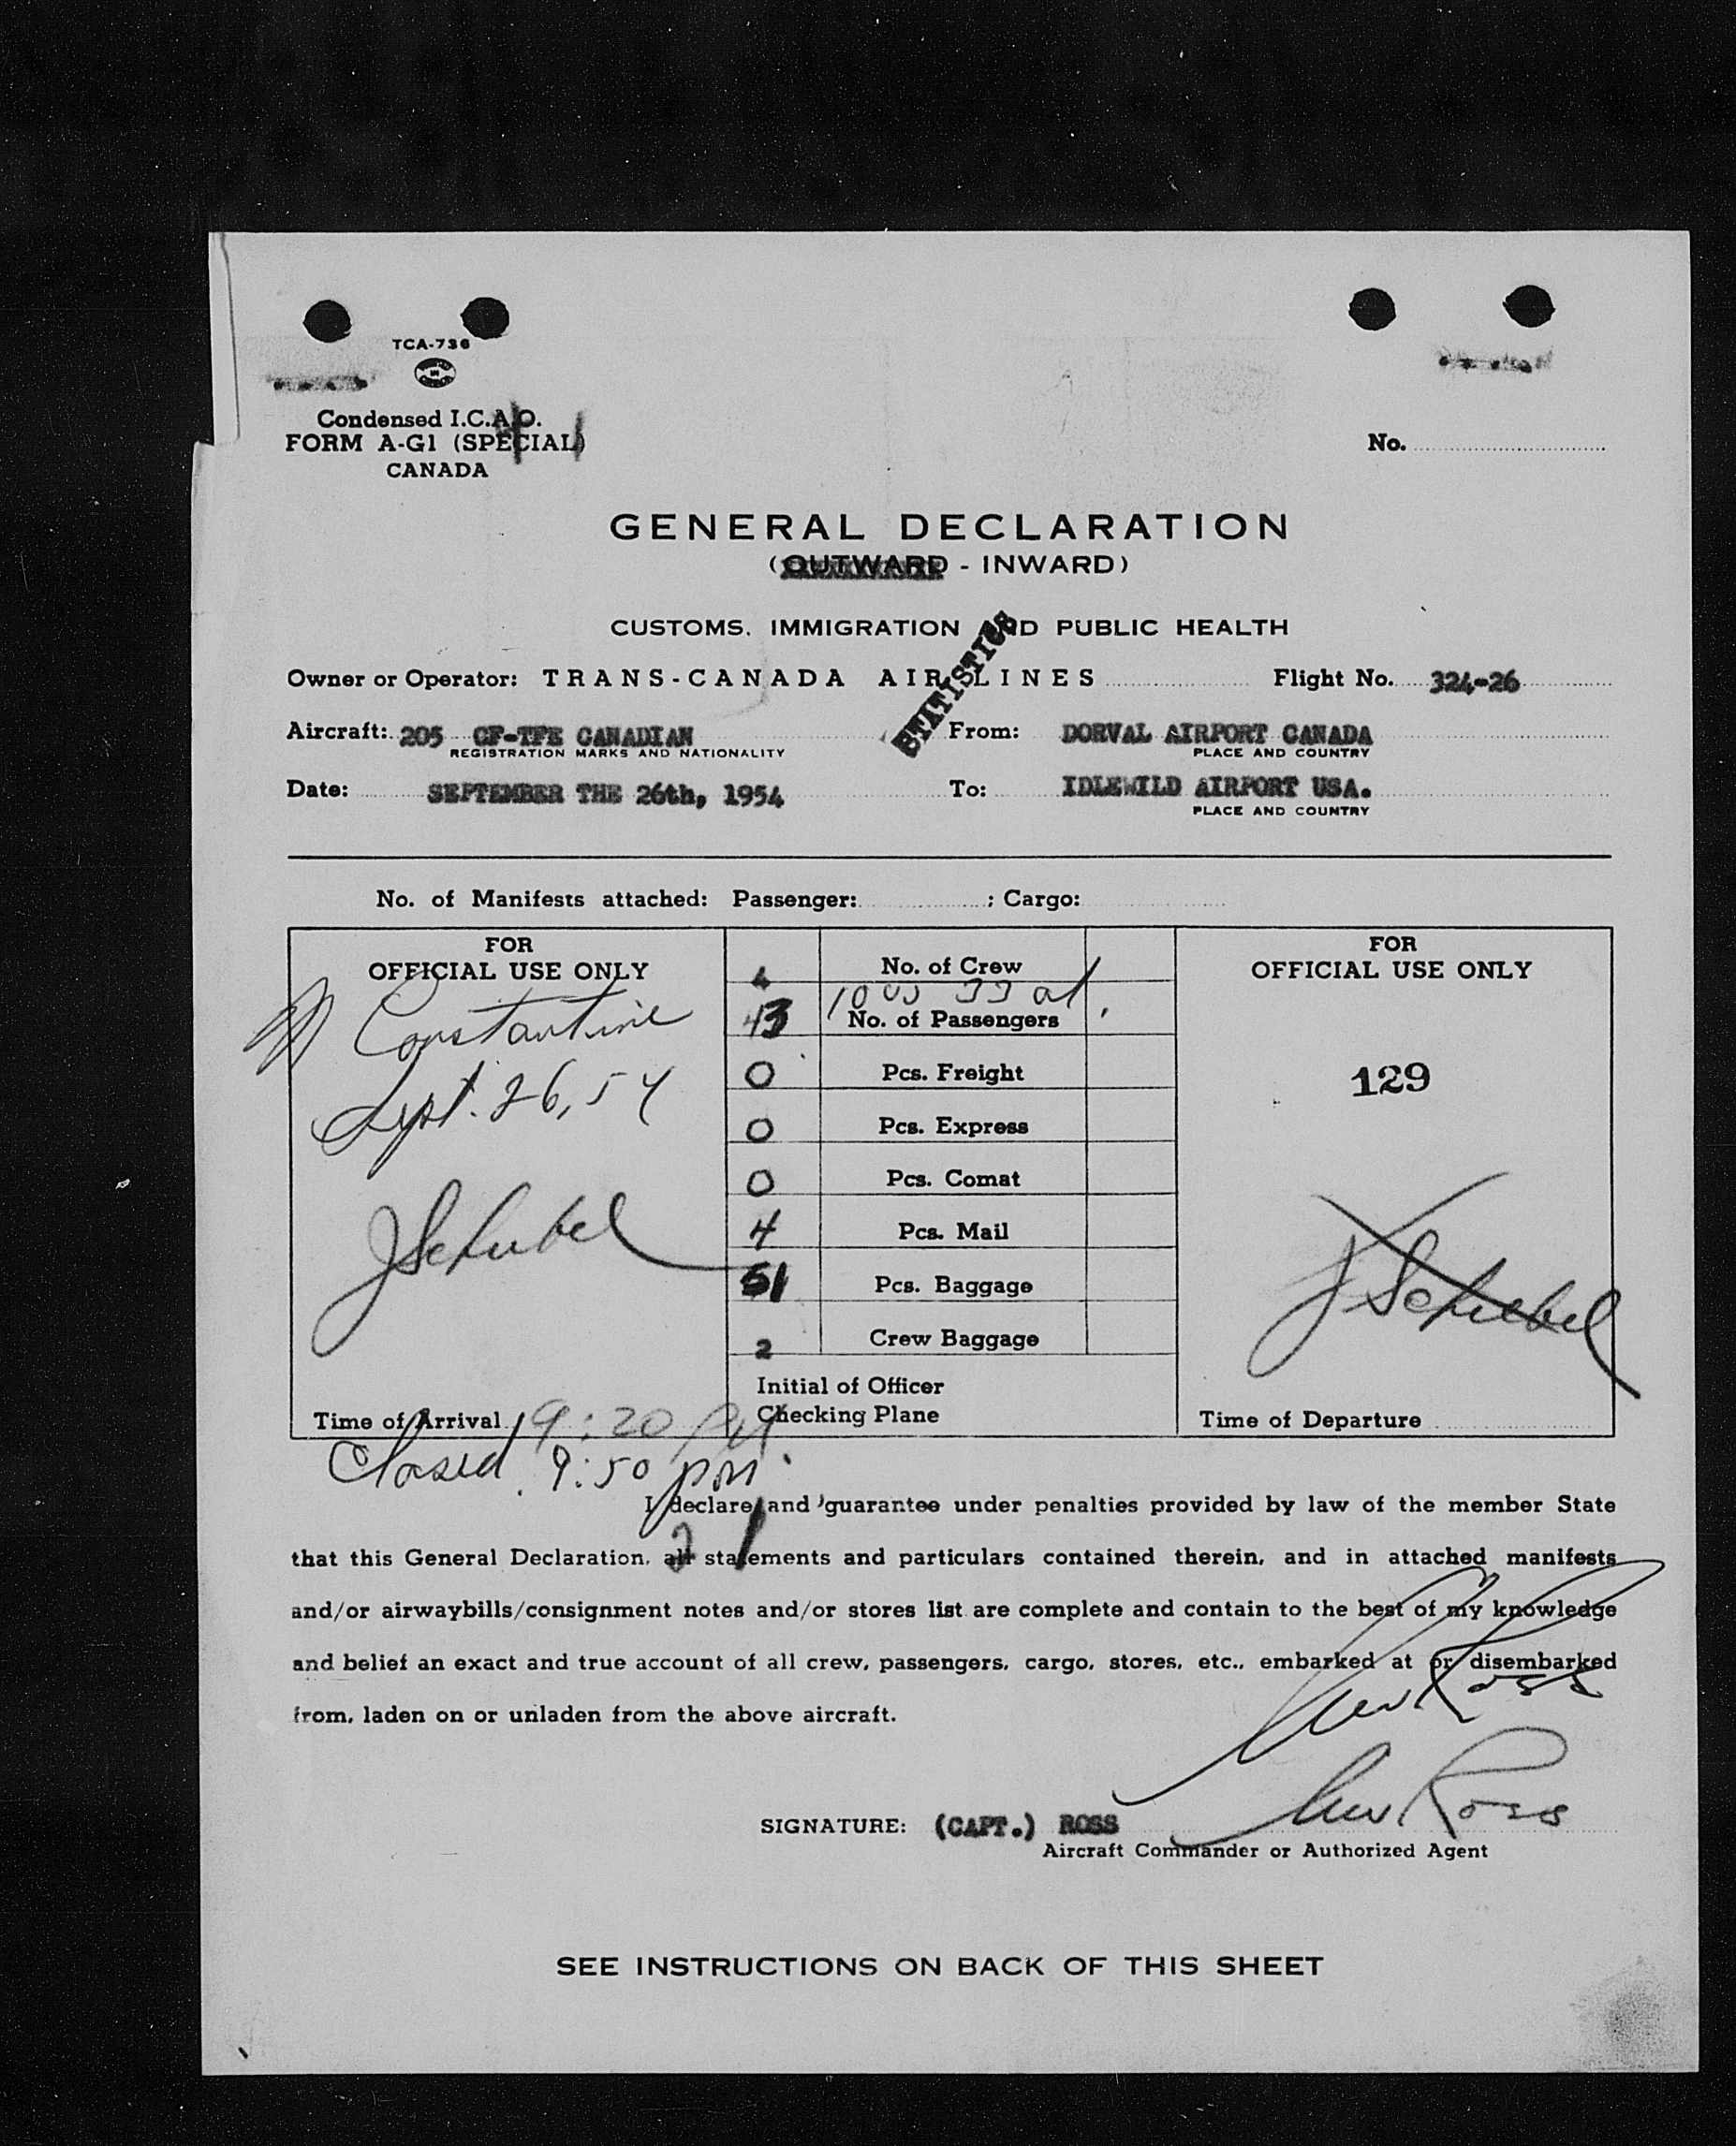 TCA-736
Condensed I.C.A.O.
FORM A-G1 (SPECIAL)
CANADA
No.
GENERAL DECLARATION
(OUTWARD - INWARD)
CUSTOMS, IMMIGRATION AND PUBLIC HEALTH
STATISTICS
Owner or Operator: TRANS-CANADA AIR LINES Flight No. 324-26
Aircraft: 205 CF-TFE CANADIAN From: DORVAL AIRPORT CANADA
REGISTRATION MARKS AND NATIONALITY PLACE AND COUNTRY
Date: SEPTEMBER THE 26th, 1954 To: IDLEWILD AIRPORT USA.
PLACE AND COUNTRY
No. of Manifests attached: Passenger: ; Cargo:
FOR
OFFICIAL USE ONLY
Constantine
Sept. 26, 54
J Schubel
Time of Arrival 9:20 PM
Closed 9:50 pm
4 No. of Crew
10 US 33 al
43 No. of Passengers
0 Pcs. Freight
0 Pcs. Express
0 Pcs. Comat
4 Pcs. Mail
51 Pcs. Baggage
2 Crew Baggage
Initial of Officer
Checking Plane
FOR
OFFICIAL USE ONLY
129
J Schubel
Time of Departure
I declare and guarantee under penalties provided by law of the member State
that this General Declaration, all statements and particulars contained therein, and in attached manifests
and/or airwaybills/consignment notes and/or stores list are complete and contain to the best of my knowledge
and belief an exact and true account of all crew, passengers, cargo, stores, etc., embarked at or disembarked
from, laden on or unladen from the above aircraft.
Ross
SIGNATURE: (CAPT.) ROSS Ross
Aircraft Commander or Authorized Agent
SEE INSTRUCTIONS ON BACK OF THIS SHEET